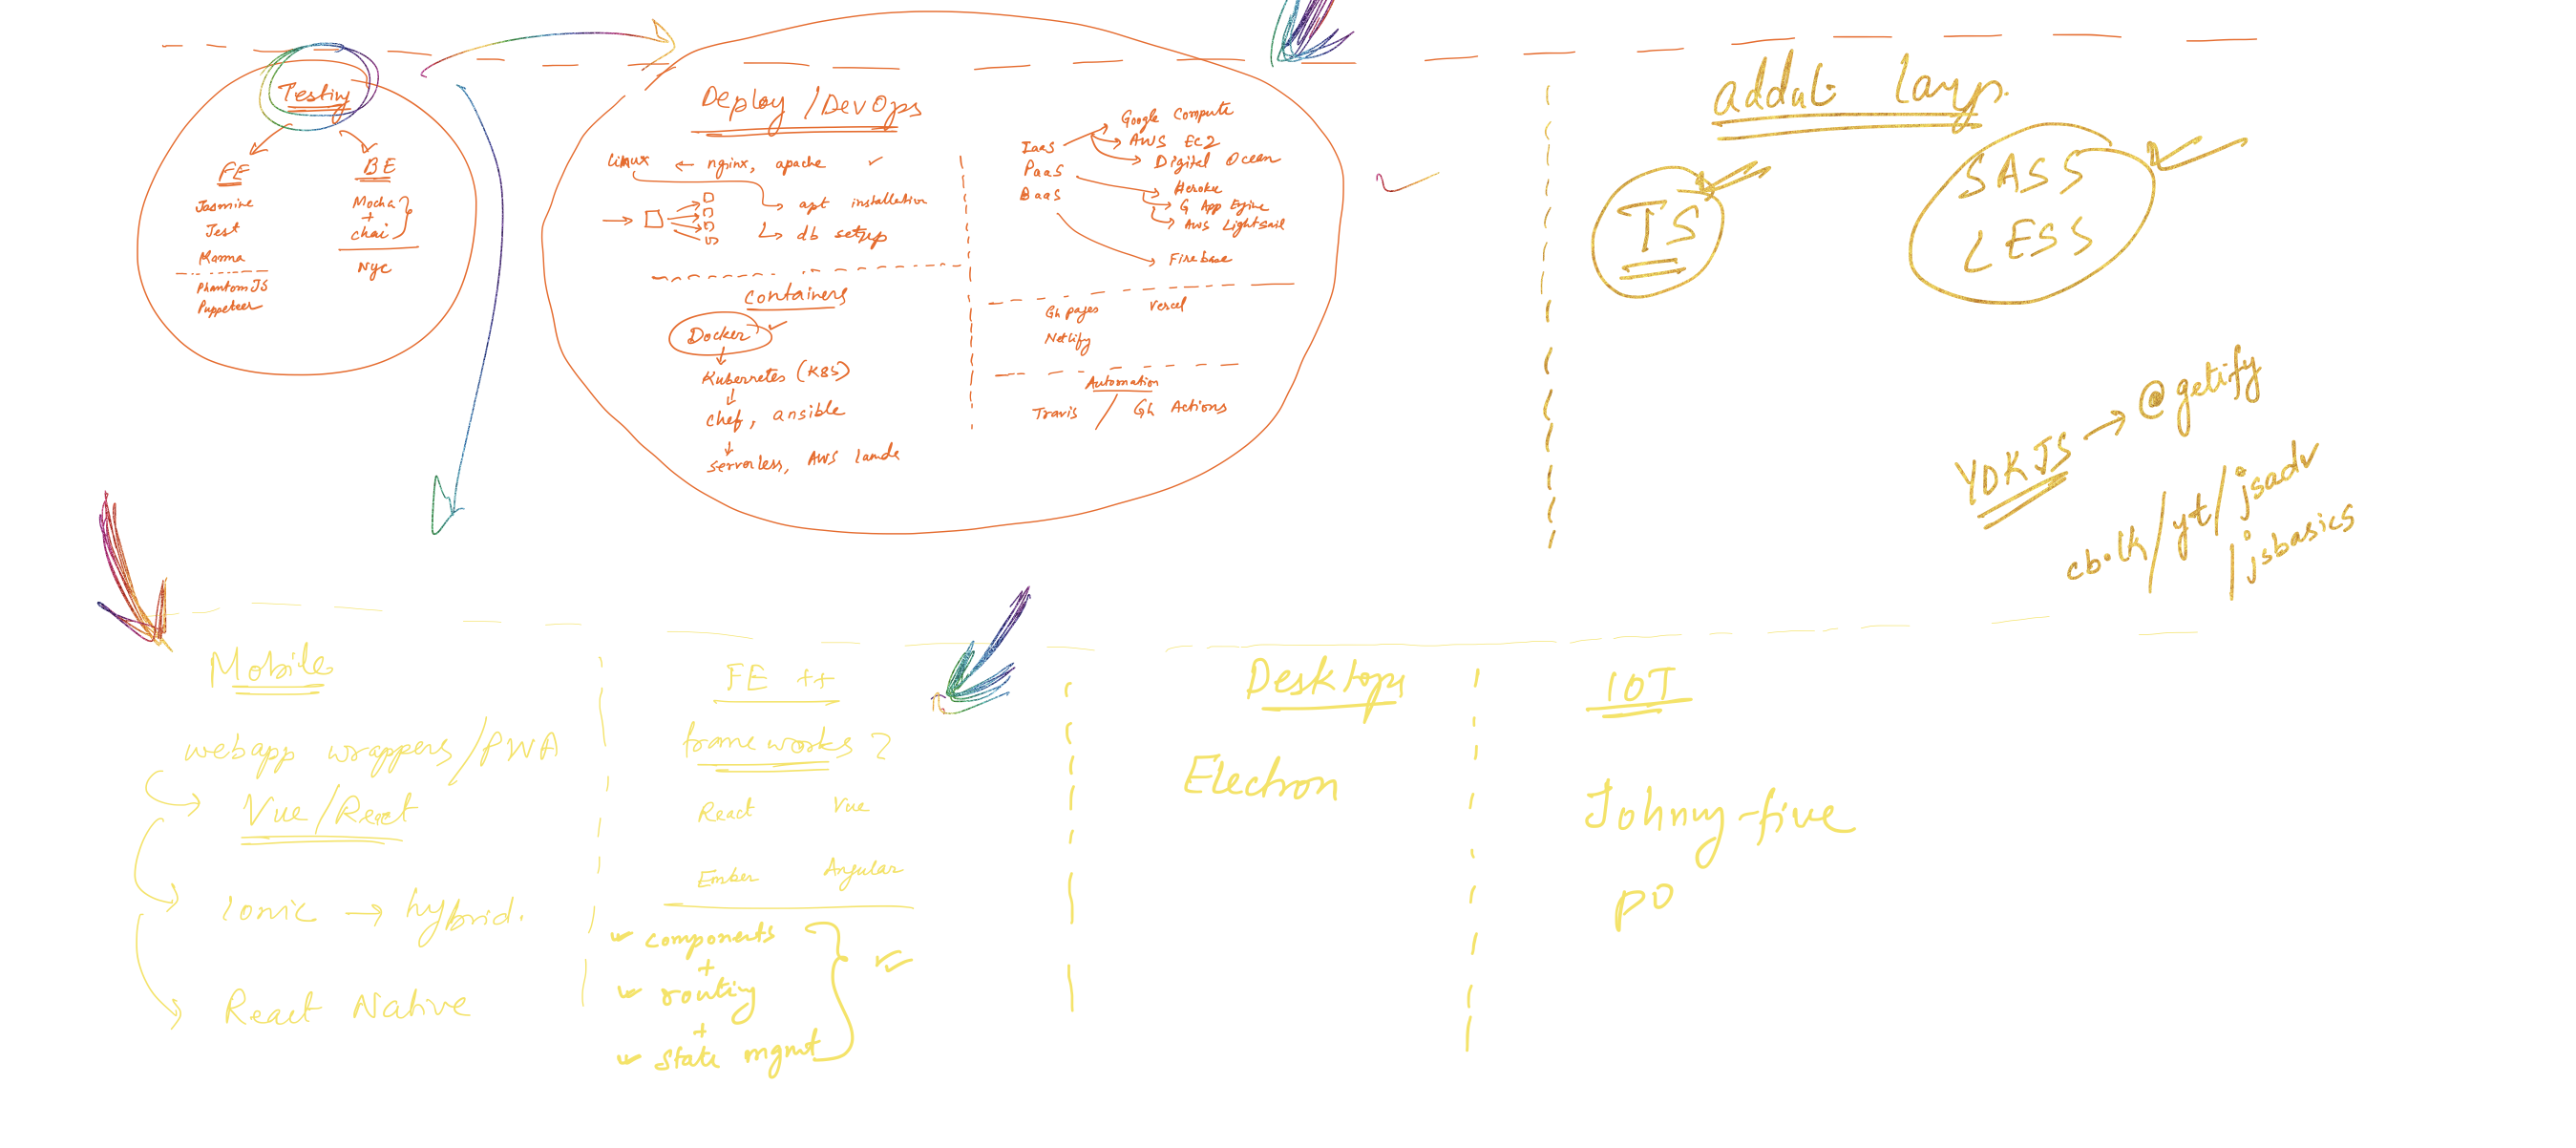 Testing
FE
BE
Jasmine
Jest
Karma
PhantomJS
Puppeteer
Mocha
+
chai
Nyc
Deploy / DevOps
linux ← nginx, apache
apt installation
db setup
containers
Docker
Kubernetes (K8S)
chef, ansible
serverless, AWS lamda
IaaS
PaaS
BaaS
Google Compute
AWS EC2
Digital Ocean
Heroku
G App Engine
AWS Lightsail
Firebase
Gh pages
Vercel
Netlify
Automation
Travis / Gh Actions
TS
SASS
LESS
YDKJS → @getify
cb.lk/yt/jsadv
/jsbasics
Mobile
webapp wrappers/PWA
Vue/React
ionic → hybrid.
React Native
FE ++
frameworks ?
React Vue
Ember Angular
components
+
routing
+
state mgmt
Desktops
Electron
IOT
Johny-five